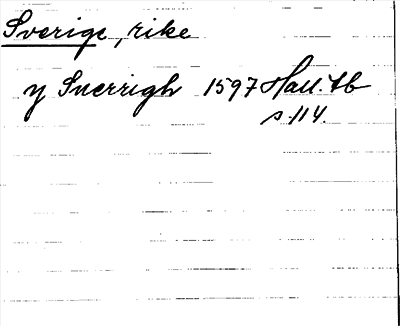 Sverige, rike
y Suerrigh 1597 Hall. tb
s. 114.